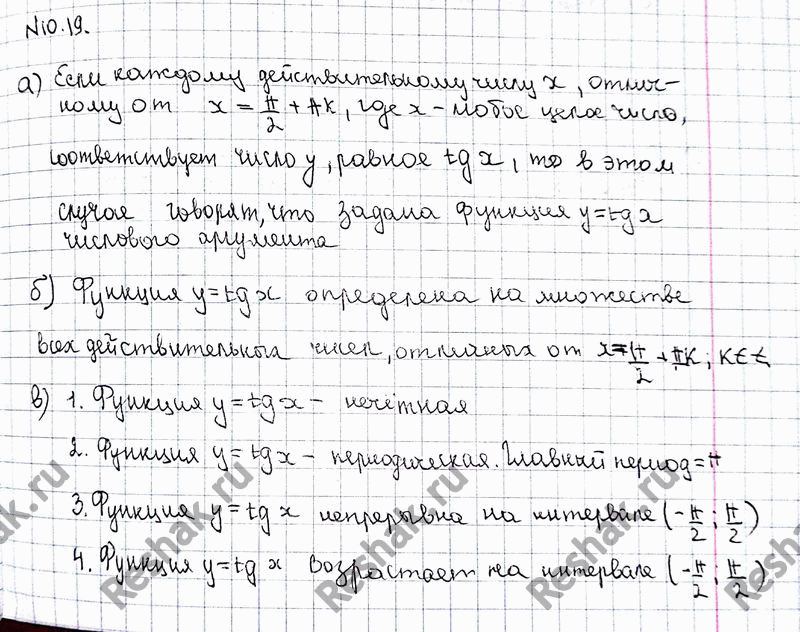 N10.19.
а) Если каждому действительному числу x, отлич-
ному от x = π/2 + πk, где x - любое целое число,
соответствует число y, равное tg x, то в этом
случае говорят, что задана функция y=tg x
числового аргумента
б) Функция y=tg x определена на множестве
всех действительных чисел, отличных от x=π/2 + πk; k∈Z
в) 1. Функция y=tg x - нечётная
2. Функция y=tg x - периодическая. Главный период=π
3. Функция y=tg x непрерывна на интервале (-π/2; π/2)
4. Функция y=tg x возрастает на интервале (-π/2; π/2)
Reshak.ru
Reshak.ru
Reshak.ru
Reshak.ru